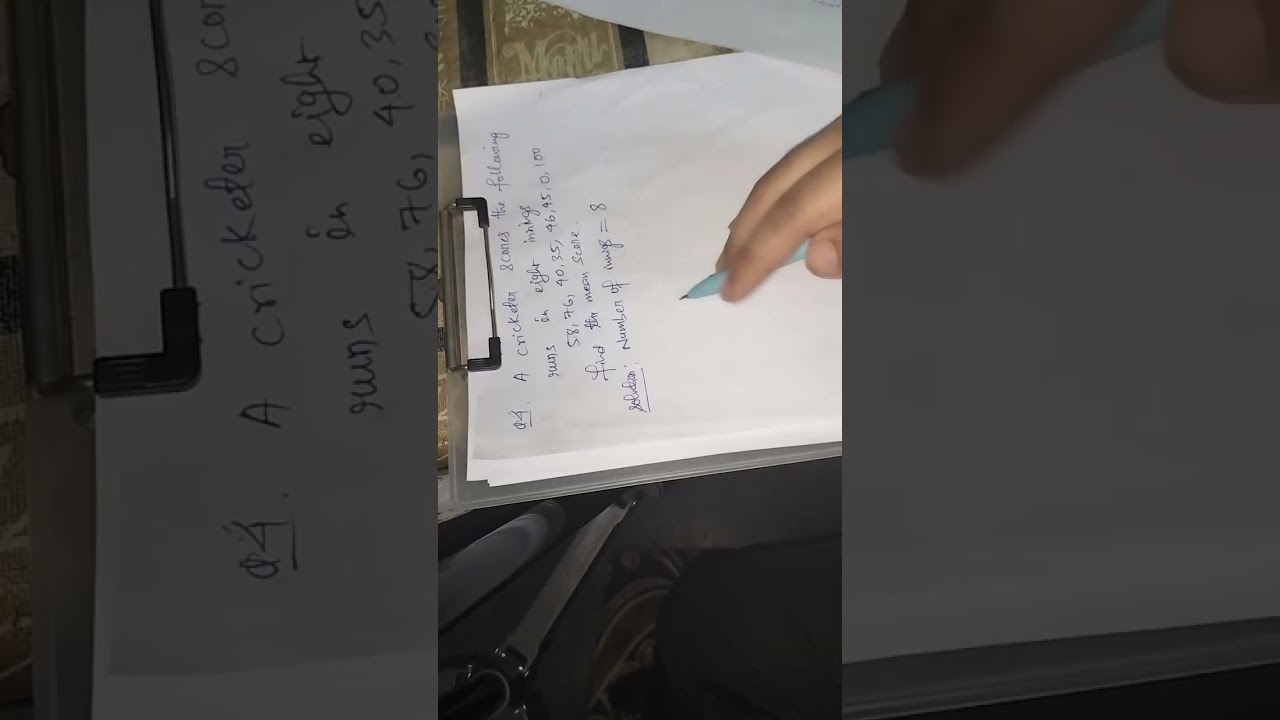 Q4. A cricketer scores the following
runs in eight innings
58, 76, 40, 35, 46, 45, 0, 100
Find the mean score.
Solution: Number of innings = 8